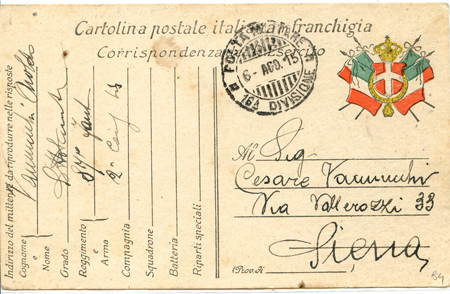 Cartolina postale italiana in franchigia
Corrispondenza del R. Esercito
POSTA MILITARE
6 - AGO. 15
16A DIVISIONE
Al Sig
Cesare Vannuchi
Via Vallerozzi 33
Siena
(Prov. di
84
Indirizzo del mittente da riprodurre nelle risposte
Cognome e Nome Vannuchi
Grado
Reggimento o Arma
Compagnia
Squadrone
Batteria
Riparti speciali